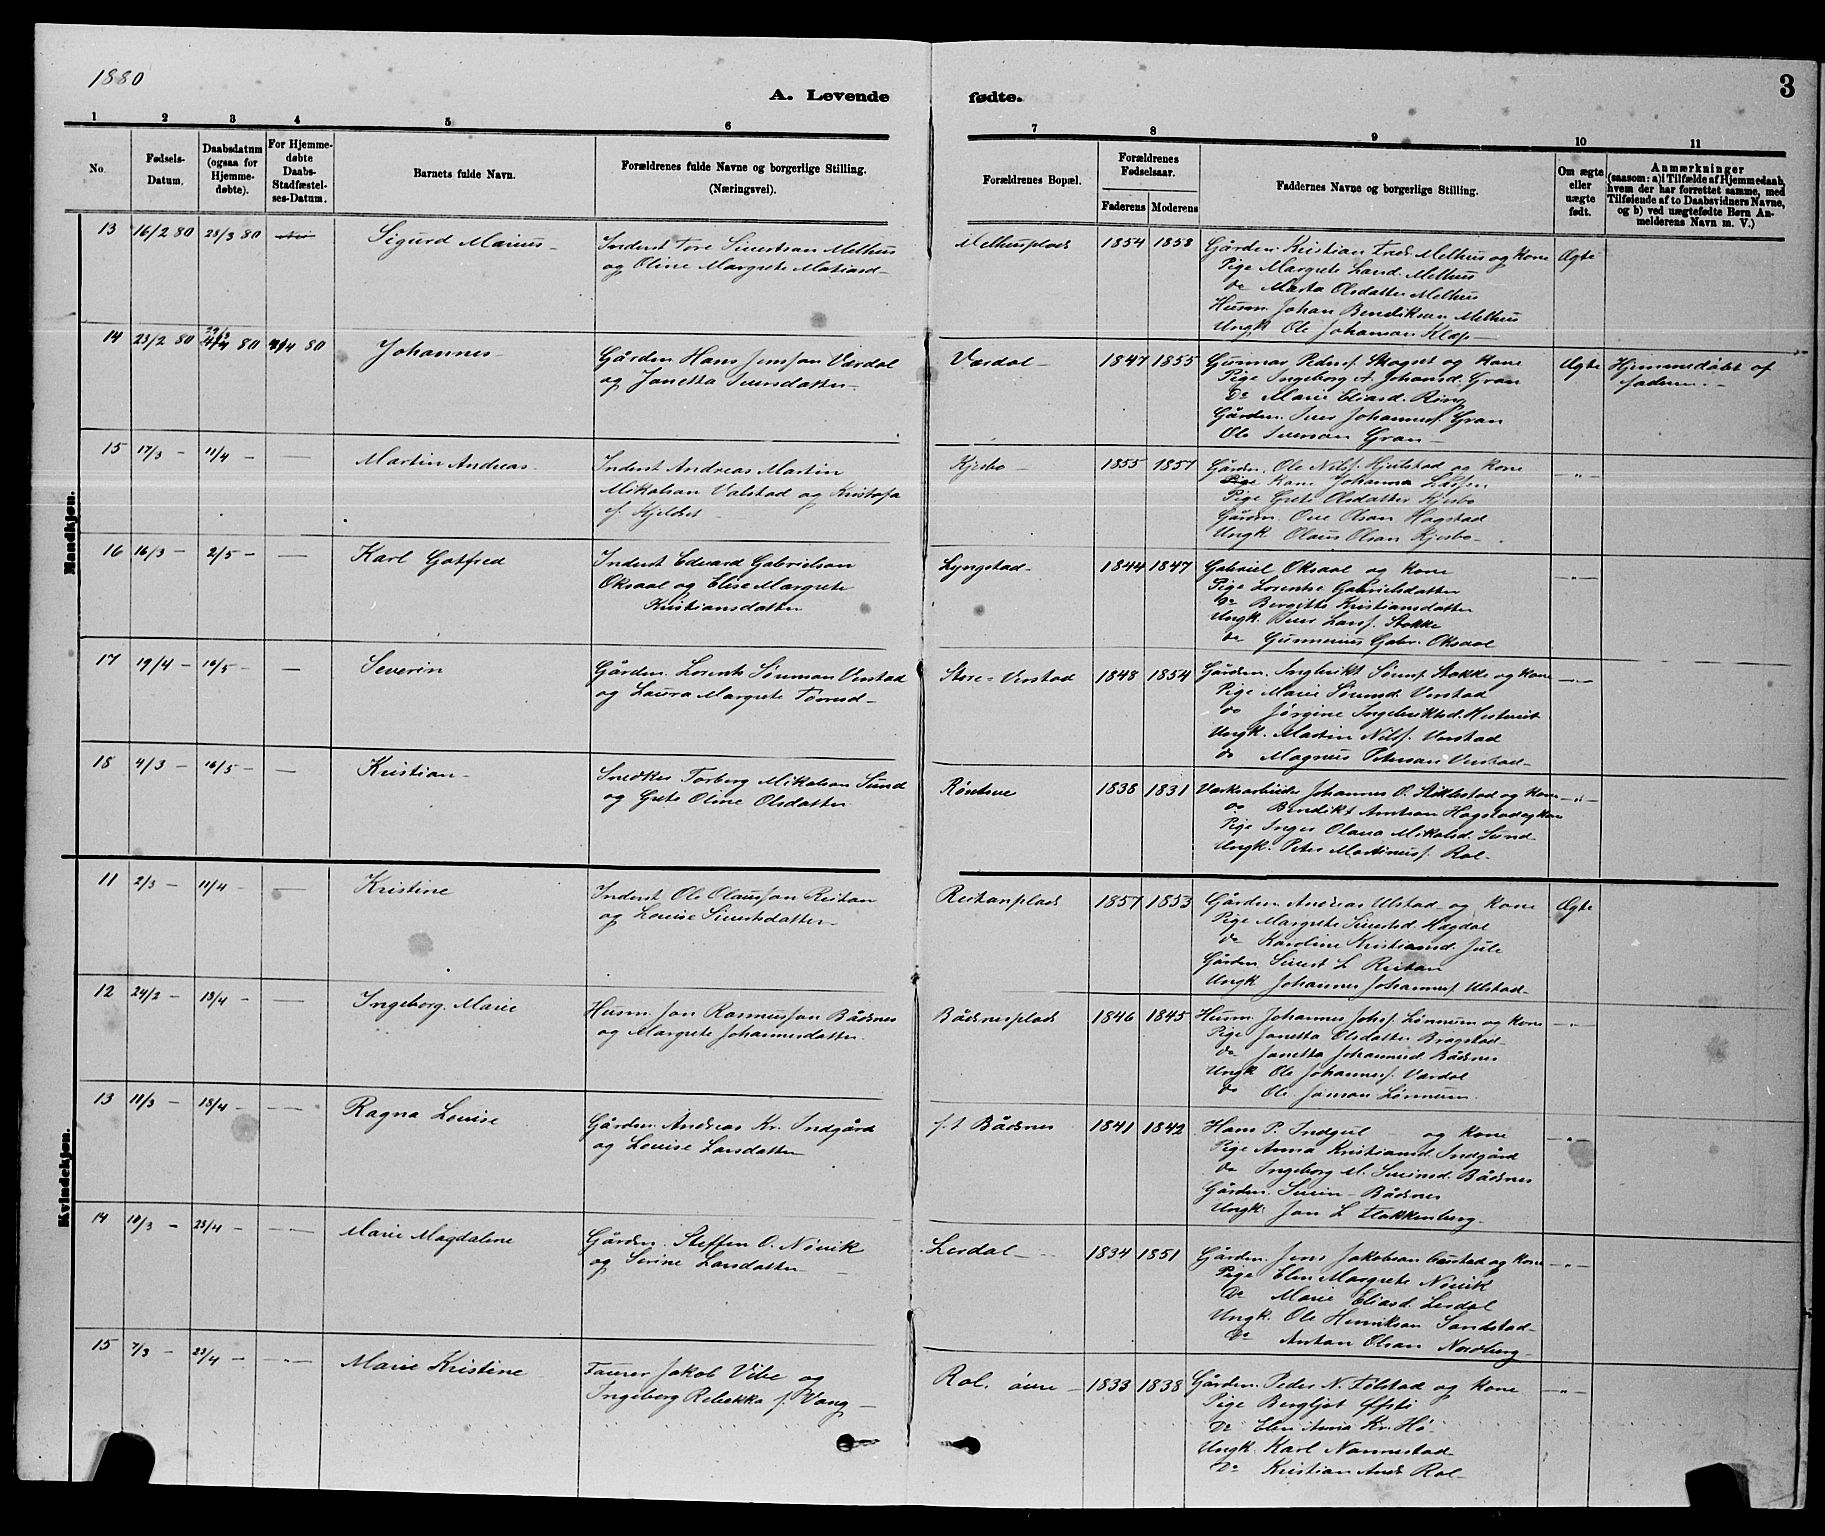 1880
A. Levende fødte.
3
1 2 3 4 5 6 7 8 9 10 11
No.
Fødsels-Datum.
Daabsdatum (ogsaa for Hjemmedøbte).
For Hjemmedøbte Daabs-Stadfæstelses-Datum.
Barnets fulde Navn.
Forældrenes fulde Navne og borgerlige Stilling. (Næringsvei).
Forældrenes Bopæl.
Forældrenes Fødselsaar.
Faderens Moderens
Faddernes Navne og borgerlige Stilling.
Om ægte eller uægte født.
Anmærkninger
(saasom: a) i Tilfælde af Hjemmedaab, hvem der har forrettet samme, med Tilføiende af to Daabsvidners Navne, og b) ved uægtefødte Børn Anmelderens Navn m. V.)
Mandkjøn.
13 16/2 80 28/3 80 Sigurd Marius
Inderst Tore Sivertsan Melhus
og Oline Margrete Matiasd
Melhusplads 1854 1858
Gården. Kristian Fred. Melhus og Kone Ægte
Pige Margrete Land. Melhus
do Marta Olsdatter Melhus
Husm. Johan Bendiksan Melhus
Ungk. Ole Johansan Klæp
14 23/2 80 29/3 80 4/4 80 Johannes
Gården Hans Jenssan Vardal
og Janetta Iversdatter
Vardal 1847 1855
Gunnar Peders. Skogset og Kone Ægte Hjemmedøbt af
Pige Ingeborg A. Johansd. Gran faderen
Do Marie Eliasd. Ring
Gården. Iver Johanness. Gran
Ole Iversan Gran
15 17/3 - 11/4 - Martin Andreas
Inderst Andreas Martin
Mikalsan Valstad og Kristofa
f. Kjeldset
Kjesbo 1855 1857
Gården. Ole Nilss. Hjulstad og Kone
Kone Johanna
Pige Grete Olsdatter Kjesbo
Gården. Ove Olsan Hagstad
Ungk. Olaus Olsan Kjesbo
16 16/3 - 2/5 - Karl Gotfred
Inderst Edvard Gabrielsan
Oksaal og Elise Margrete
Kristiansdatter
Lyngstad 1844 1847
Gabriel Oksaal og Kone
Pige Lorentse Gabrielsdatter
Do Bergitte Kristiansdatter
Ungk. Iver Larss. Stokke
do Gunnerius Gabr. Oksaal
17 19/4 - 16/5 - Severin
Gården. Lorents Sørensan Verstad
og Laura Margrete Tøresd
Store-Verstad 1848 1854
Gården. Ingbrikt Sørens. Stokke og Kone
Pige Marie Sørensd. Verstad
do Jørgine Ingebriktsd.
Ungk. Martin Nilss. Verstad
do Magnus Petersan Verstad
18 4/3 - 16/5 - Kristian
Snedker Torberg Mikalsan Sund
og Grete Oline Olsdatter
1838 1831
Værksarbeider Johannes O. Stiklestad og Kone
do Bendikt Arntsan Hagstad og Kone
Pige Inger Olava Mikalsd. Sund
Ungk. Peter Martinuss. Rol
Kvindekjøn.
11 2/3 - 11/4 - Kristine
Inderst Ole Olaussan Reitan
og Louise Sivertsdatter
Reitanplads 1857 1853
Gården. Andreas Ulstad og Kone Ægte
Pige Margrete Sivertsd. Hægdal
do Karoline Kristiansd. Jule
Gården Sivert L Reitan
Ungk Johannes Johanness. Ulstad
12 24/2 - 18/4 - Ingeborg. Marie
Husm. Jon Rasmussan Bådsnes
og Margrete Johannesdatter
Bådsnesplads 1846 1845
Husm. Johannes Johs. Lønnum og Kone
Pige Janetta Olsdatter Bragstad
do Janetta Johannesd Bådsnes
Ungk Ole Johanness. Vardal
do Ole Jonsan Lønnum.
13 11/3 - 18/4 - Ragna Louise
Gården. Andreas Kr. Indgård
og Louise Larsdatter
f. t Bådsnes 1841 1842
Hans P. Indgul og Kone
Pige Anna Kristiansd. Indgård
do Ingeborg M. Sveinsd. Bådsnes
Gården. Svein Bådsnes
Ungk. Jon L Flakkenberg
14 10/3 - 23/4 - Marie Magdalene
Gården. Steffen O. Nøvik
og Serine Larsdatter
Lerdal 1834 1851
Gården Jens Jakobsan Aurstad og Kone
Pige Elen Margrete Nøvik
Do Marie Eliasd. Lerdal
Ungk. Ole Henriksan Sandstad
Do Antan Olsan Nordberg
15 7/3 - 23/4 - Marie Kristine
Farver Jakob Vibe og
Ingeborg Rebekka f. Wang
Rol. øvre 1833 1838
Gården. Peder N. Følstad og Kone
Pige Bergljot Øfsti
Do Elen Anna Kr. Hø
Ungk. Karl Nannestad
Do Kristian Ands Rol